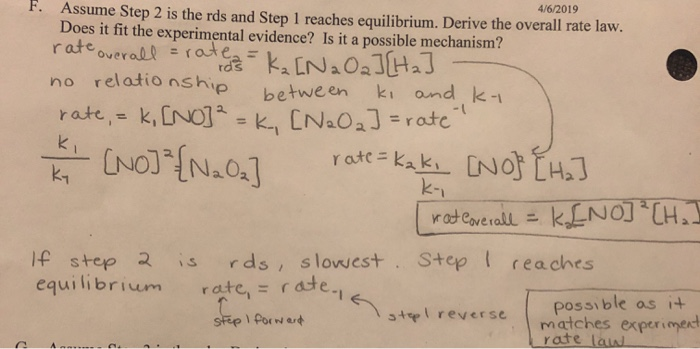 4/6/2019
F. Assume Step 2 is the rds and Step 1 reaches equilibrium. Derive the overall rate law.
Does it fit the experimental evidence? Is it a possible mechanism?
rate overall = rate₂ rds = k₂ [N₂O₂][H₂]
no relationship between k₁ and k-₁
rate₁ = k₁ [NO]² = k₋₁ [N₂O₂] = rate⁻¹
k₁/k₋₁ [NO]² = [N₂O₂]
rate = k₂ k₁/k-₁ [NO]² [H₂]
rate overall = k [NO]² [H₂]
If step 2 is rds, slowest. Step 1 reaches
equilibrium rate₁ = rate₋₁
step 1 forward
step 1 reverse
possible as it
matches experiment
rate law